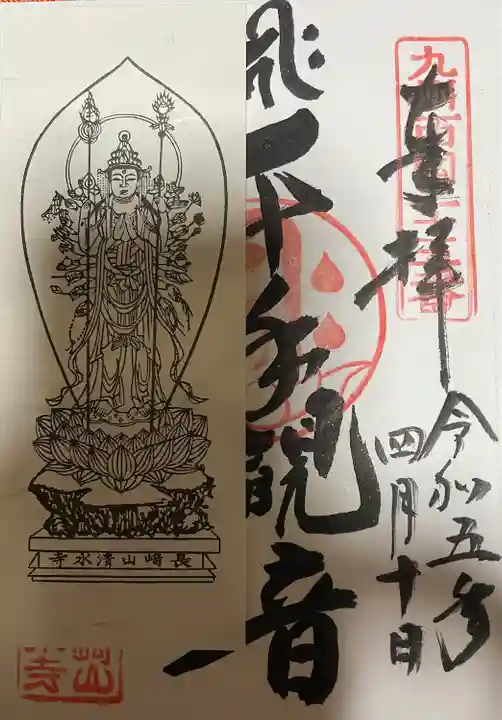 九州西国二十五番
奉拝
令和五年
四月十日
千手観音
長﨑山清水寺